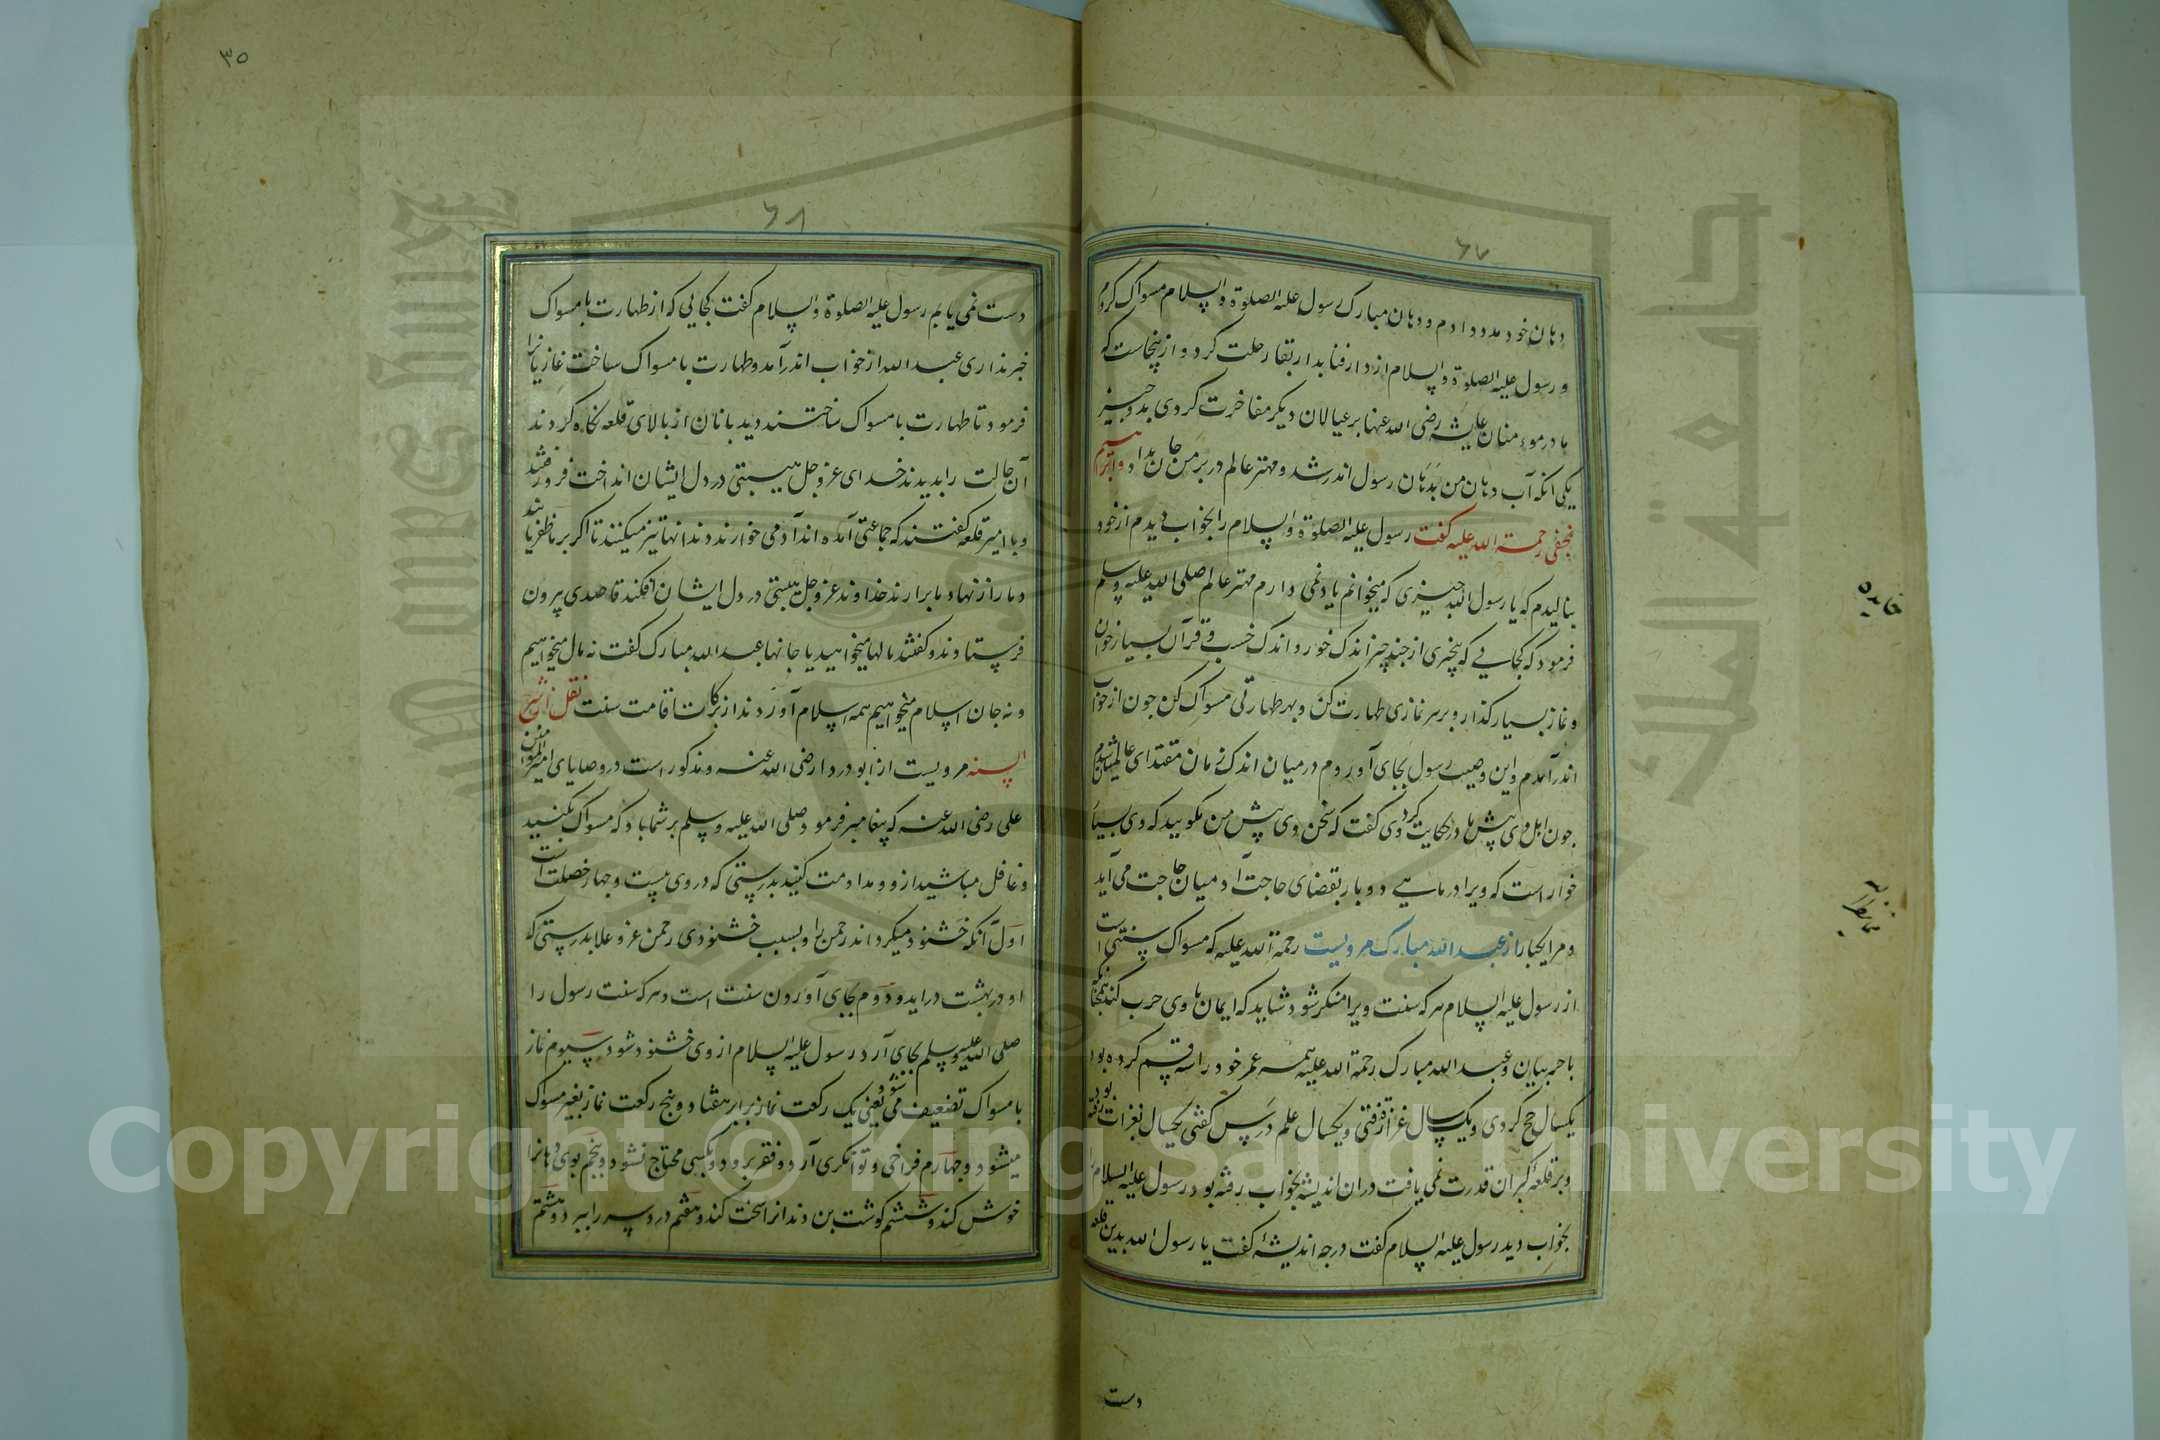 ۶۷
دهان خود مدد دادم و دهان مبارک رسول علیه الصلوة والسلام مسواک کردم
و رسول علیه الصلوة والسلام از دار فنا بدار بقا رحلت کرد و ازینجاست که
مادر مومنان عایشه رضی الله عنها بر عیالان دیگر مفاخرت کردی بدو چیز
یکی آنکه آب دهان من بدهان رسول اندر شد و مهتر عالم در بر من جان بداد و ابراهیم
نخعی رحمة الله علیه کفت رسول علیه الصلوة والسلام را بخواب دیدم از خود
بنالیدم که یا رسول الله چیزی که میخوانم یاد نمی دارم مهتر عالم صلی الله علیه وسلم
فرمود که کجایی که بیخبری از چند چیز اندک خور و اندک خسب و قرآن بسیار خوان
و نماز بسیار کذار و بر هر نمازی طهارت کن و بهر طهارتی مسواک کن چون از خواب
اندر آمدم و این وصیت رسول بجای آوردم در میان اندک زمان مقتدای عالمیان شدم
چون اهل وی پیش ما در حکایت کردی وی کفت که سخن وی پیش من مکویید که وی بسیار
خوار است که ویرا در ماهی دو بار بقضای حاجت آد میان حاجت می آید
و مر این خبار از عبد الله مبارک مرویست رحمة الله علیه که مسواک سنتی است
از رسول علیه السلام هر که سنت ویرا منکر شود شاید که ایمان با وی حرب کند همچنانکه
با حربیان و عبد الله مبارک رحمة الله علیه همه عمر خود را سه قسم کرده بود
یکسال حج کردی و یک سال غزا رفتی و یکسال علم درس کفتی یکسال بغزات رفته بود
و بر قلعه کبران قدرت نمی یافت در آن اندیشه بخواب رفته بود رسول علیه السلام را
بخواب دید رسول علیه السلام کفت در چه اندیشه کفت یا رسول الله بدین قلعه
دست
۳۵
۶۸
دست نمی یابم رسول علیه الصلوة والسلام کفت کجایی که از طهارت با مسواک
خبر نداری عبد الله از خواب اندر آمد و طهارت با مسواک ساخت غازیانرا
فرمود تا طهارت با مسواک ساختند دیدبانان از بالای قلعه نکاه کردند
آن حالت را بدیدند خدای عز و جل هیبتی در دل ایشان انداخت فرو رفتند
و با امیر قلعه کفتند که جماعتی آمده اند آدمی خوارند دندانها تیز میکنند تا اکر بر ما ظفر یابند
دمار از نهاد ما برارند خداوند عز و جل هیبتی در دل ایشان افکند قاصدی بیرون
فرستادند و کفتند مالها میخواهید یا جانها عبد الله مبارک کفت نه مال میخواهیم
و نه جان اسلام میخواهیم همه اسلام آوردند از برکات اقامت سنت نقل از شرح
السنه مرویست از ابو دردا رضی الله عنه و مذکور است در وصایای امیر المؤمنین
علی رضی الله عنه که پیغامبر فرمود صلی الله علیه وسلم بر شما باد که مسواک بکنید
و غافل مباشید ازو و مداومت کنید بدرستی که در وی بیست و چهار خصلت است
اول آنکه خشنود میکرداند رحمن را و بسبب خشنودی رحمن عز و علا بدرستی که
او در بهشت دراید و دوم بجای آوردن سنت است و هر که سنت رسول را
صلی الله علیه وسلم بجای آرد رسول علیه السلام از وی خشنود شود سیوم نماز
با مسواک تضعیف می شود یعنی یک رکعت نماز برابر هفتاد و پنج رکعت نماز بغیر مسواک
میشود و چهارم فراخی و توانکری آرد و فقر برود و بکسی محتاج نشود و پنجم بوی دهانرا
خوش کند و ششم کوشت بن دندانرا سخت کند و هفتم درد سر را ببرد و هشتم